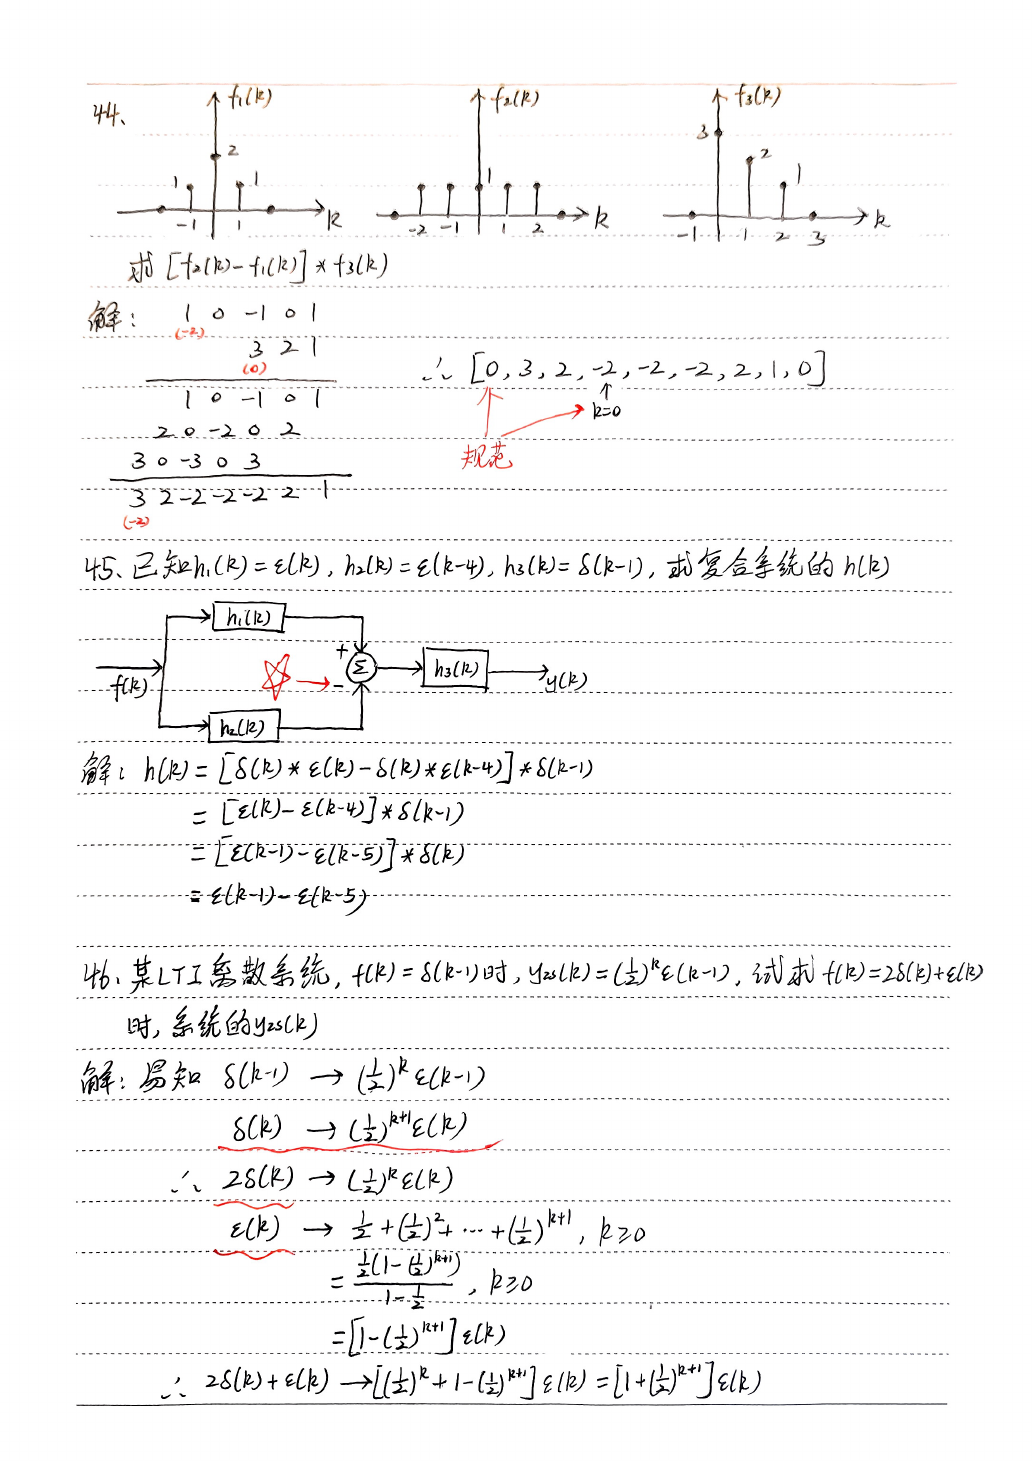 44、 f₁(k) f₂(k) f₃(k)
1 2 1 1 3 2 1
-1 1 k -2 -1 1 2 k -1 1 2 3 k
求 [f₂(k)-f₁(k)] * f₃(k)
解： 1 0 -1 0 1
(-2)
3 2 1
(0)
∴ [0, 3, 2, -2, -2, -2, 2, 1, 0]
1 0 -1 0 1
k=0
2 0 -2 0 2
规范
3 0 -3 0 3
3 2 -2 -2 -2 2 1
(-2)
45、已知h₁(k)=ε(k), h₂(k)=ε(k-4), h₃(k)=δ(k-1), 求复合系统的 h(k)
h₁(k)
+ Σ - h₃(k)
f(k) y(k)
h₂(k)
解：h(k)=[δ(k)*ε(k)-δ(k)*ε(k-4)]*δ(k-1)
=[ε(k)-ε(k-4)]*δ(k-1)
=[ε(k-1)-ε(k-5)]*δ(k)
=ε(k-1)-ε(k-5)
46、某LTI离散系统, f(k)=δ(k-1)时, yzs(k)=(1/2)^k ε(k-1), 试求 f(k)=2δ(k)+ε(k)
时, 系统的yzs(k)
解：易知 δ(k-1) → (1/2)^k ε(k-1)
δ(k) → (1/2)^(k+1) ε(k)
∴ 2δ(k) → (1/2)^k ε(k)
ε(k) → 1/2+(1/2)^2+⋯+(1/2)^(k+1), k≥0
= 1/2(1-(1/2)^(k+1)) / (1-1/2), k≥0
=[1-(1/2)^(k+1)] ε(k)
∴ 2δ(k)+ε(k) → [(1/2)^k+1-(1/2)^(k+1)] ε(k)=[1+(1/2)^(k+1)] ε(k)